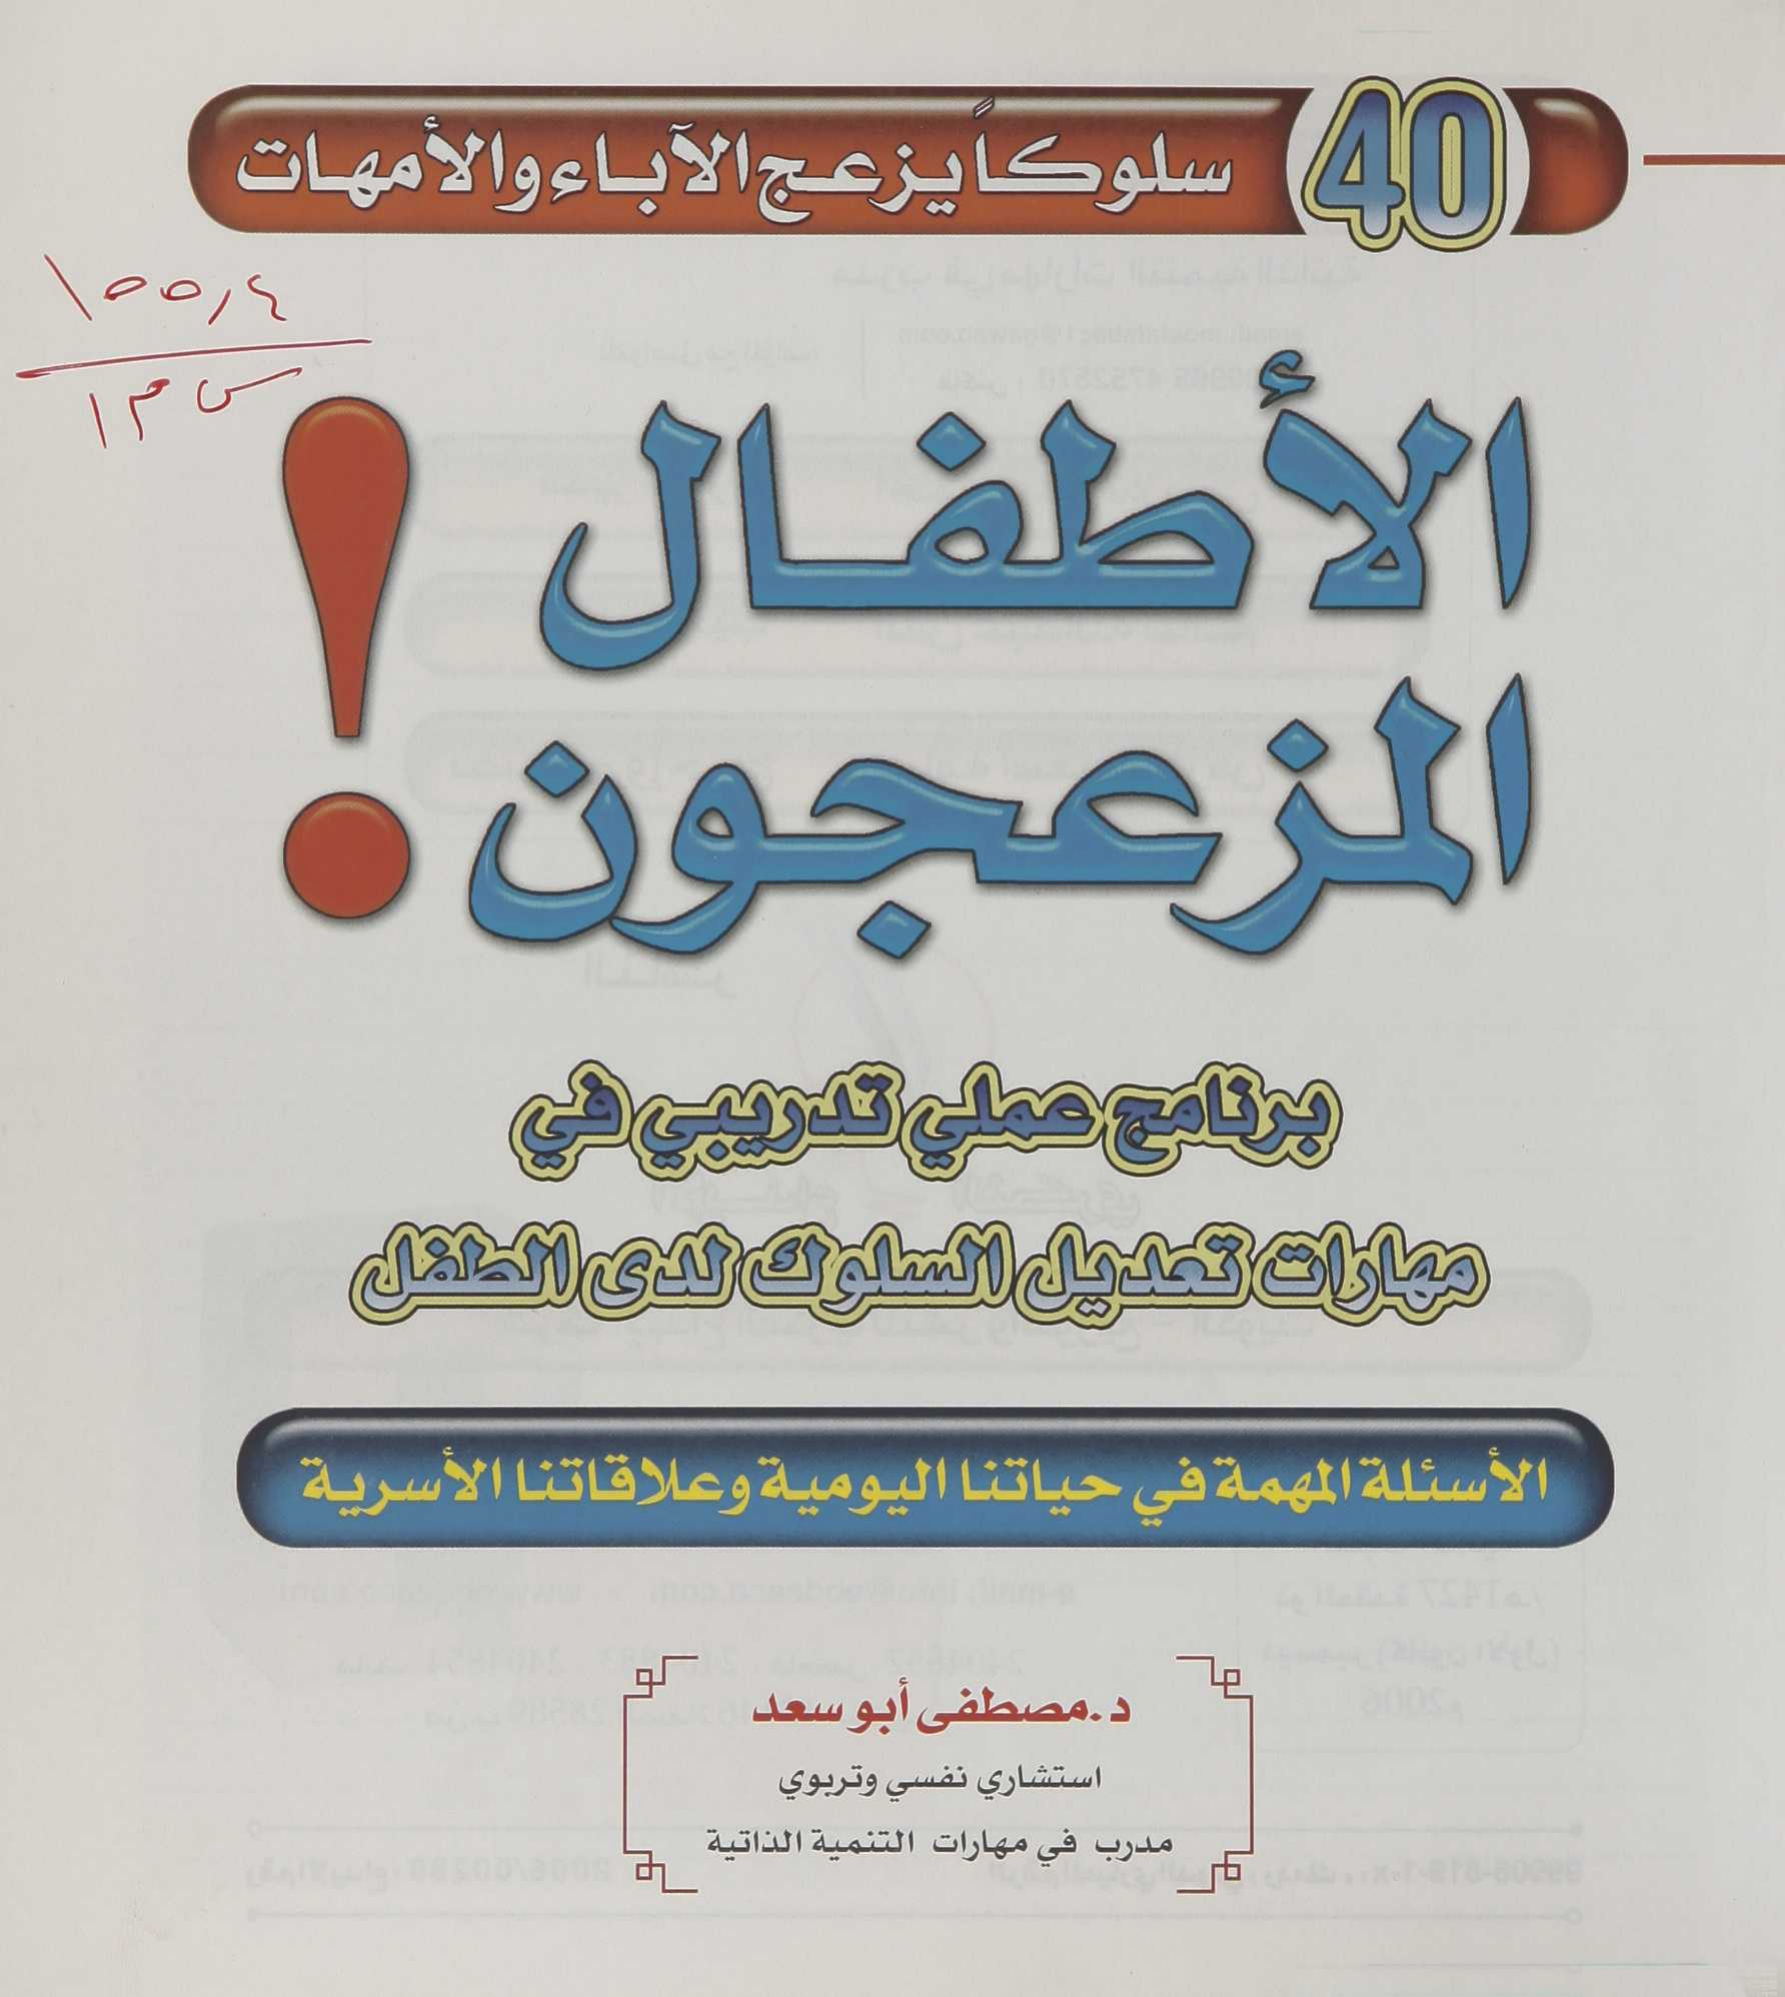 40 سلوكاً يزعج الآباء والأمهات
١٥٥,٤
س م ا
الأطفال
المزعجون!
برنامج عملي تدريبي في
مهارات تعديل السلوك لدى الطفل
الأسئلة المهمة في حياتنا اليومية وعلاقاتنا الأسرية
د. مصطفى أبو سعد
استشاري نفسي وتربوي
مدرب في مهارات التنمية الذاتية